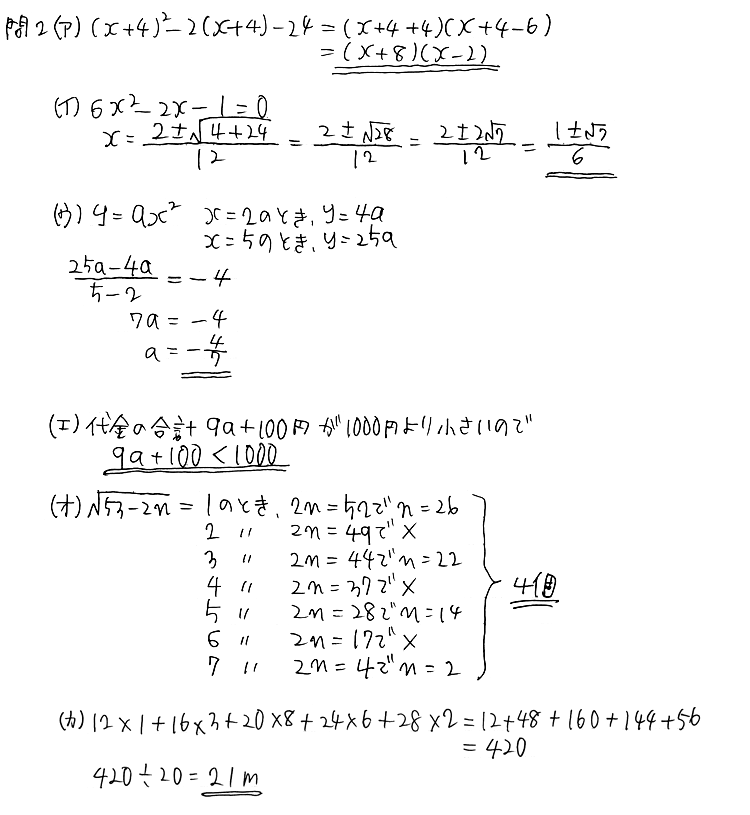 問2(ア) (x+4)²-2(x+4)-24=(x+4+4)(x+4-6)
=(x+8)(x-2)
(イ) 6x²-2x-1=0
x=\frac{2±√(4+24)}{12}=\frac{2±√28}{12}=\frac{2±2√7}{12}=\frac{1±√7}{6}
(ウ) y=ax² x=2のとき、y=4a
x=5のとき、y=25a
\frac{25a-4a}{5-2}=-4
7a=-4
a=-\frac{4}{7}
(エ) 代金の合計 9a+100円が1000円より小さいので
9a+100<1000
(オ) √(53-2n)=1のとき、2n=52で n=26
2 〃 2n=49で×
3 〃 2n=44で n=22
4 〃 2n=37で×
5 〃 2n=28で n=14
6 〃 2n=17で×
7 〃 2n=4で n=2
4個
(カ) 12×1+16×3+20×8+24×6+28×2=12+48+160+144+56
=420
420÷20=21m